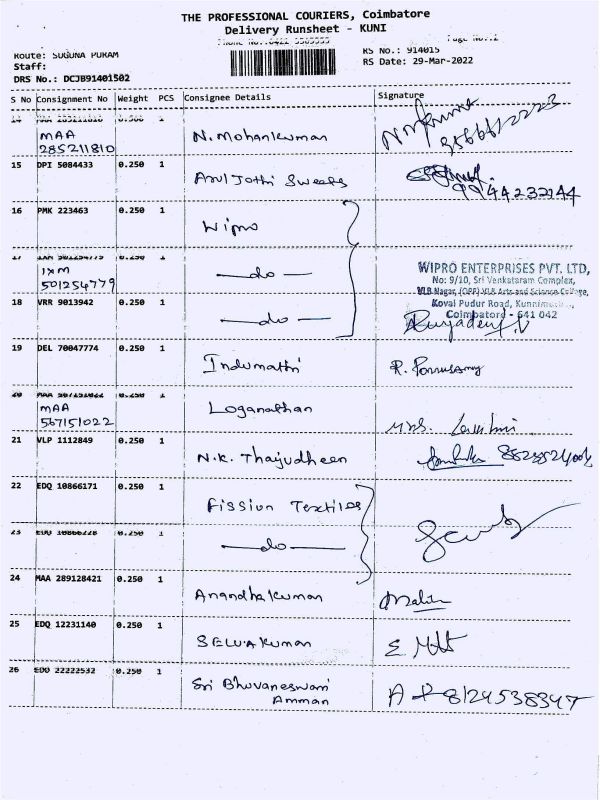 THE PROFESSIONAL COURIERS, Coimbatore
Delivery Runsheet - KUNI
Route: SUGUNA PURAM
Staff:
DRS No.: DCJB91401502
RS No.: 914015
RS Date: 29-Mar-2022
S No Consignment No Weight PCS Consignee Details Signature
MAA 285211810 N. Mohankumar
15 DPI 5084433 0.250 1 Arul Jothi Sweets 9944232144
16 PMK 223463 0.250 1 Wipro
IXM 501254779 —do—
WIPRO ENTERPRISES PVT. LTD,
No: 9/10, Sri Venkataram Complex,
VLB Nagar, (OPP) VLB Arts and Science College,
Koval Pudur Road,
Coimbatore - 641 042
18 VRR 9013942 0.250 1 —do—
19 DEL 70047774 0.250 1 Indumathi R. Ponnusamy
MAA 567151022 Loganathan Mrs. Lakshmi
21 VLP 1112849 0.250 1 N.K. Thajudheen
22 EDQ 10866171 0.250 1 Fission Textiles
23 —do—
24 MAA 289128421 0.250 1 Anandhakumar
25 EDQ 12231140 0.250 1 SELVAKumar
26 EDO 22222532 0.250 1 Sri Bhuvaneswari
Amman 8124538347